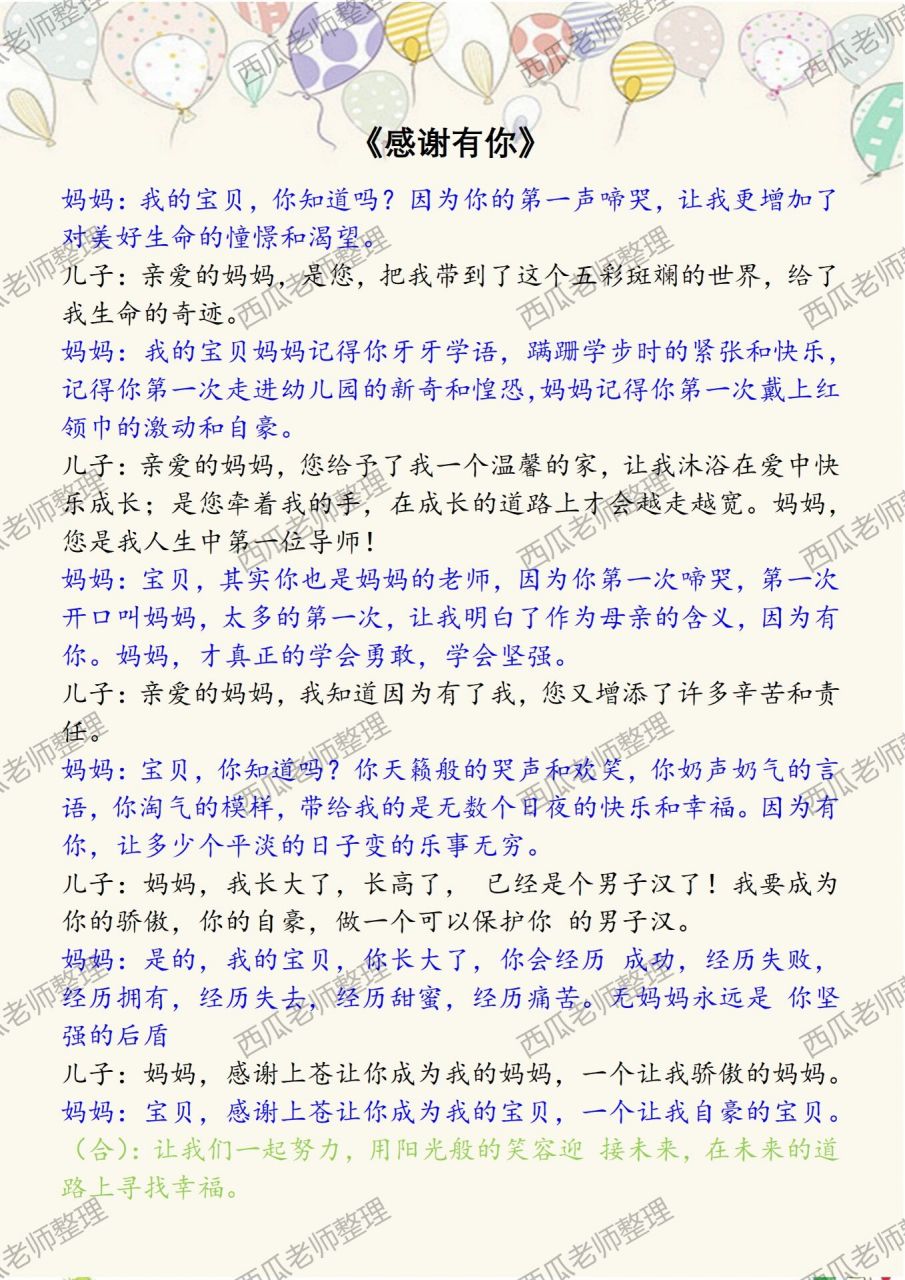 《感谢有你》
妈妈：我的宝贝，你知道吗？因为你的第一声啼哭，让我更增加了
对美好生命的憧憬和渴望。
儿子：亲爱的妈妈，是您，把我带到了这个五彩斑斓的世界，给了
我生命的奇迹。
妈妈：我的宝贝妈妈记得你牙牙学语，蹒跚学步时的紧张和快乐，
记得你第一次走进幼儿园的新奇和惶恐，妈妈记得你第一次戴上红
领巾的激动和自豪。
儿子：亲爱的妈妈，您给予了我一个温馨的家，让我沐浴在爱中快
乐成长；是您牵着我的手，在成长的道路上才会越走越宽。妈妈，
您是我人生中第一位导师！
妈妈：宝贝，其实你也是妈妈的老师，因为你第一次啼哭，第一次
开口叫妈妈，太多的第一次，让我明白了作为母亲的含义，因为有
你。妈妈，才真正的学会勇敢，学会坚强。
儿子：亲爱的妈妈，我知道因为有了我，您又增添了许多辛苦和责
任。
妈妈：宝贝，你知道吗？你天籁般的哭声和欢笑，你奶声奶气的言
语，你淘气的模样，带给我的是无数个日夜的快乐和幸福。因为有
你，让多少个平淡的日子变的乐事无穷。
儿子：妈妈，我长大了，长高了， 已经是个男子汉了！我要成为
你的骄傲，你的自豪，做一个可以保护你 的男子汉。
妈妈：是的，我的宝贝，你长大了，你会经历 成功，经历失败，
经历拥有，经历失去，经历甜蜜，经历痛苦。无妈妈永远是 你坚
强的后盾
儿子：妈妈，感谢上苍让你成为我的妈妈，一个让我骄傲的妈妈。
妈妈：宝贝，感谢上苍让你成为我的宝贝，一个让我自豪的宝贝。
（合）：让我们一起努力，用阳光般的笑容迎 接未来，在未来的道
路上寻找幸福。
西瓜老师整理